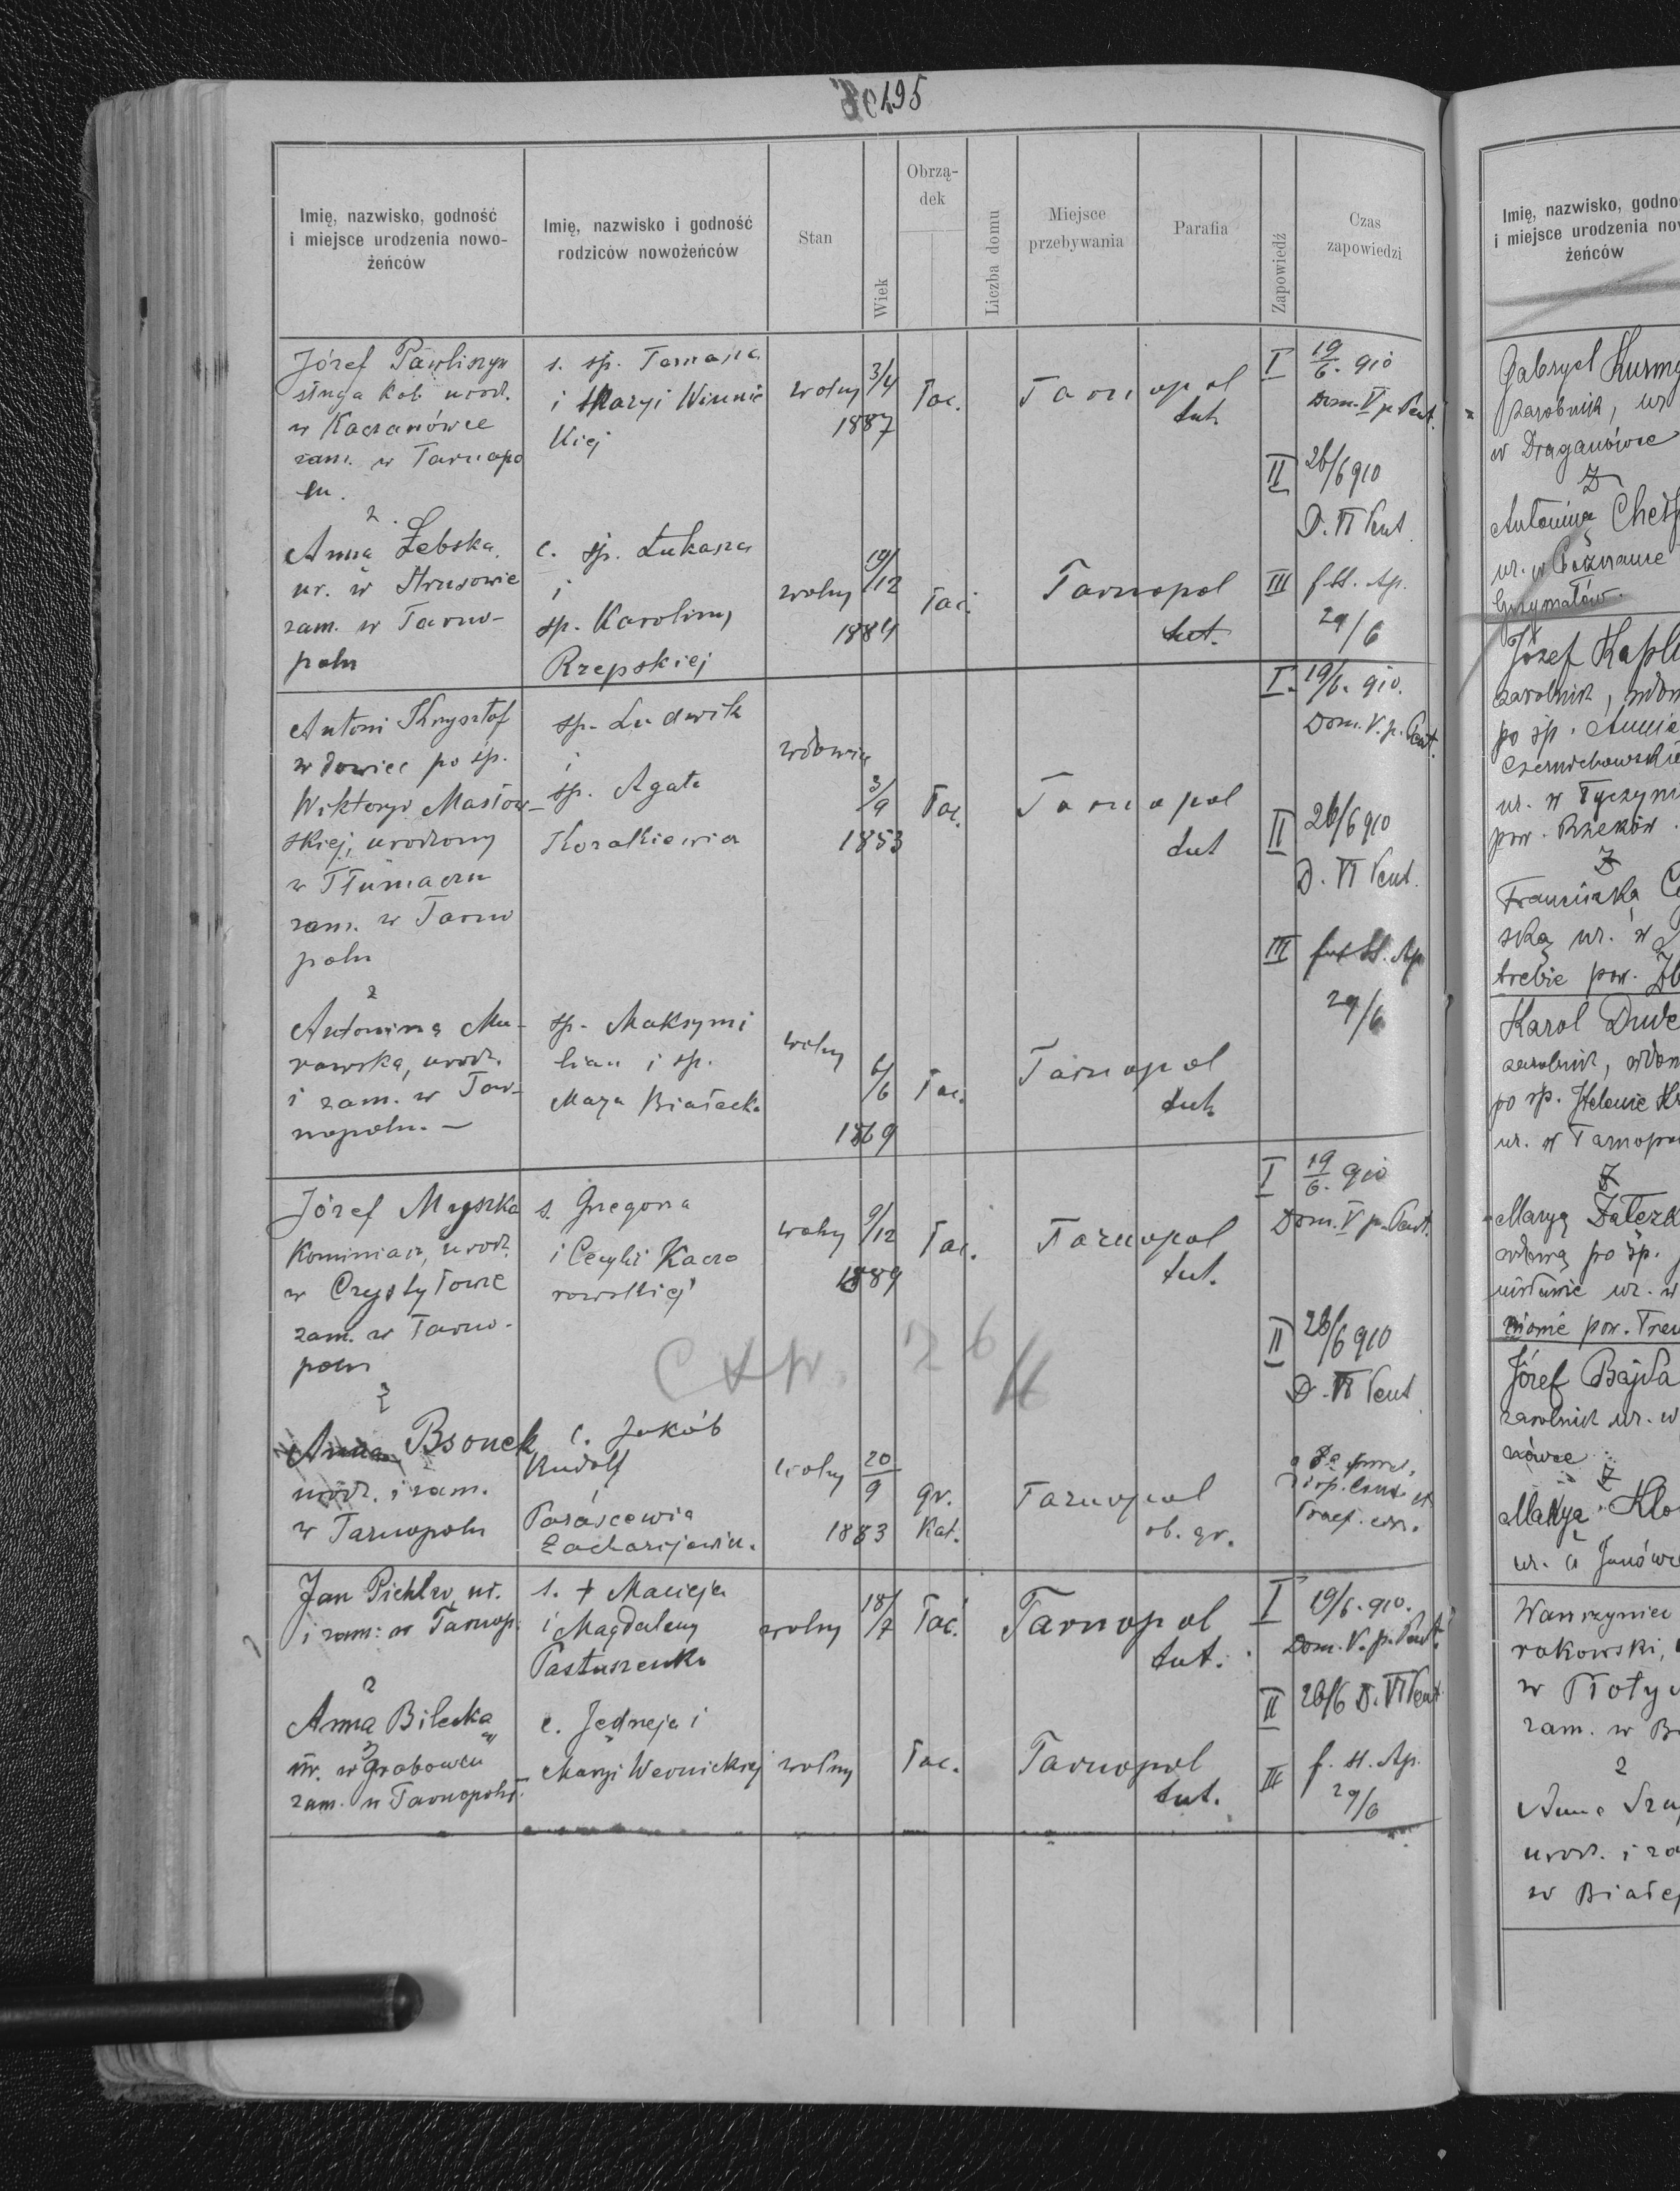 495
Imię, nazwisko, godność
i miejsce urodzenia nowo-
żeńców
Imię, nazwisko i godność
rodziców nowożeńców
Stan
Wiek
Obrzą-
dek
Liczba domu
Miejsce
przebywania
Parafia
Zapowiedź
Czas
zapowiedzi
Józef Pawliszyn
sługa kol. urodz.
w Kaczanówce
zam. w Tarnopo
lu.
s. śp. Tomasza
i Maryi Winnic
kiej
wolny
3/4
1887
łac.
Tarnopol
tut.
I 19/6. 910
Dom. V p. Pent.
II 26/6 910
D. VI Pent.
z
Anna Żebska
ur. w Strusowie
zam. w Tarno-
polu
c. śp. Łukasza
i
śp. Karoliny
Rzepskiej
wolny
19/12
1884
łac.
Tarnopol
tut.
III f. SS. Ap.
29/6
Antoni Krysztof
wdowiec po śp.
Wiktoryi Masłow-
skiej, urodzony
w Tłumaczu
zam. w Tarno
polu
śp. Ludwik
i
śp. Agata
Koralkiewicz
wdowiec
3/9
1853
łac.
Tarnopol
tut
I. 19/6. 910.
Dom. V. p. Pent.
II 26/6 910
D. VI Pent.
III fest SS. Ap
29/6
z
Antonina Mu-
rawska, urodz.
i zam. w Tar-
nopolu. —
śp. Maksymi
lian i śp.
Marya Białecka
wolny
6/6
1869
łac.
Tarnopol
tut.
Józef Myszka
kominiarz, urodz.
w Czystyłowie
zam. w Tarno-
polu
s. Grzegorza
i Cecylii Kacza
rowskiej
wolny
9/12
1889
łac.
Tarnopol
tut.
I 19/6. 910
Dom. V p. Pent.
II 26/6 910
D. VI Pent
26/6
z
Anna Bsonek
urodz. i zam.
w Tarnopolu
c. Jakób
Rudolf
Paráscewia
Zacharijewicz.
wolny
20/9
1883
gr.
kat.
Tarnopol
ob. gr.
Jan Pichlw, ur.
i zam: w Tarnop:
s. + Macieja
i Magdaleny
Pastuszenko
wolny
18/7
łać.
Tarnopol
tut.
I 19/6. 910.
Dom. V. p. Pent.
II 26/6 D. VI Pent
z
Anna Bilecka
ur. w Grabowcu
zam. w Tarnopolu.
c. Jędrzeja i
Maryi Wernickiej
wolny
łac.
Tarnopol
tut.
III f. SS. Ap.
29/6
Imię, nazwisko, godno
i miejsce urodzenia no
żeńców
Gabryel Kurm
zarobnik, ur
w Draganówce
Z
Antonina
Grzymałów.
Józef Kapl
zarobnik, wdow
po śp.
ur. w Tyczyni
pow. Rzeków.
Z
Franciszka
ską ur. w
trebie pow. Zb
Karol Dude
zarobnik, wdow
po śp. Helenie
ur. w Tarnopo
Z
Maryą Zalezk
wdową po śp.
pow. Trem
Józef Bajda
zarobnik ur. w
nówce
Z
Marya Kło
ur. w Janówc
Wawrzyniec
rakowski,
w Płoty
zam. w
z
Anna
urodz. i za
w Białej